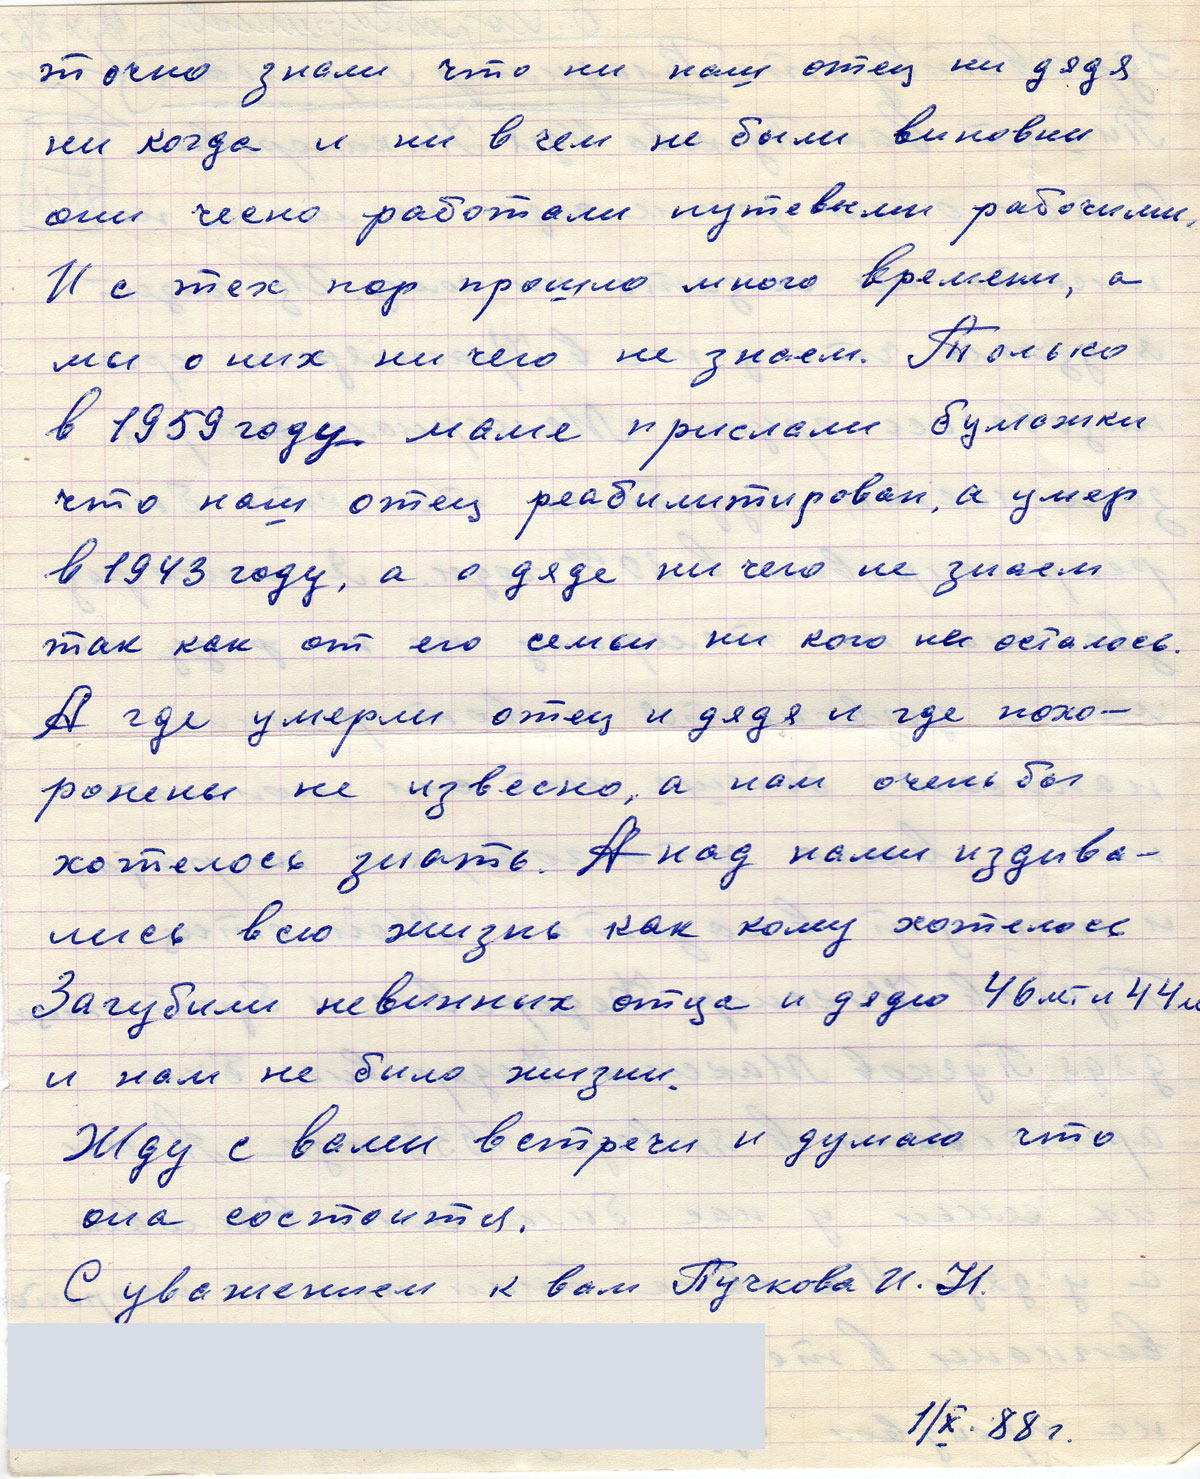 точно знали что ни наш отец ни дядя
ни когда и ни в чем не были виновни
они чесно работали путевыми рабочими,
И с тех пор прошло много времени, а
мы о них ни чего не знаем. Только
в 1959 году маме прислали бумажки
что наш отец реабилитирован, а умер
в 1943 году, а о дяде ни чего не знаем
так как от его семьи ни кого не осталось.
А где умерли отец и дядя и где похо-
ронены не извесно, а нам очень бы
хотелось знать. А над нами издива-
лись всю жизнь как кому хотелось
Загубили невинных отца и дядю 46 л. и 44 л
и нам не было жизни.
Жду с вами встречи и думаю что
она состоится.
С уважением к вам Пучкова И. Н.
1/X. 88 г.